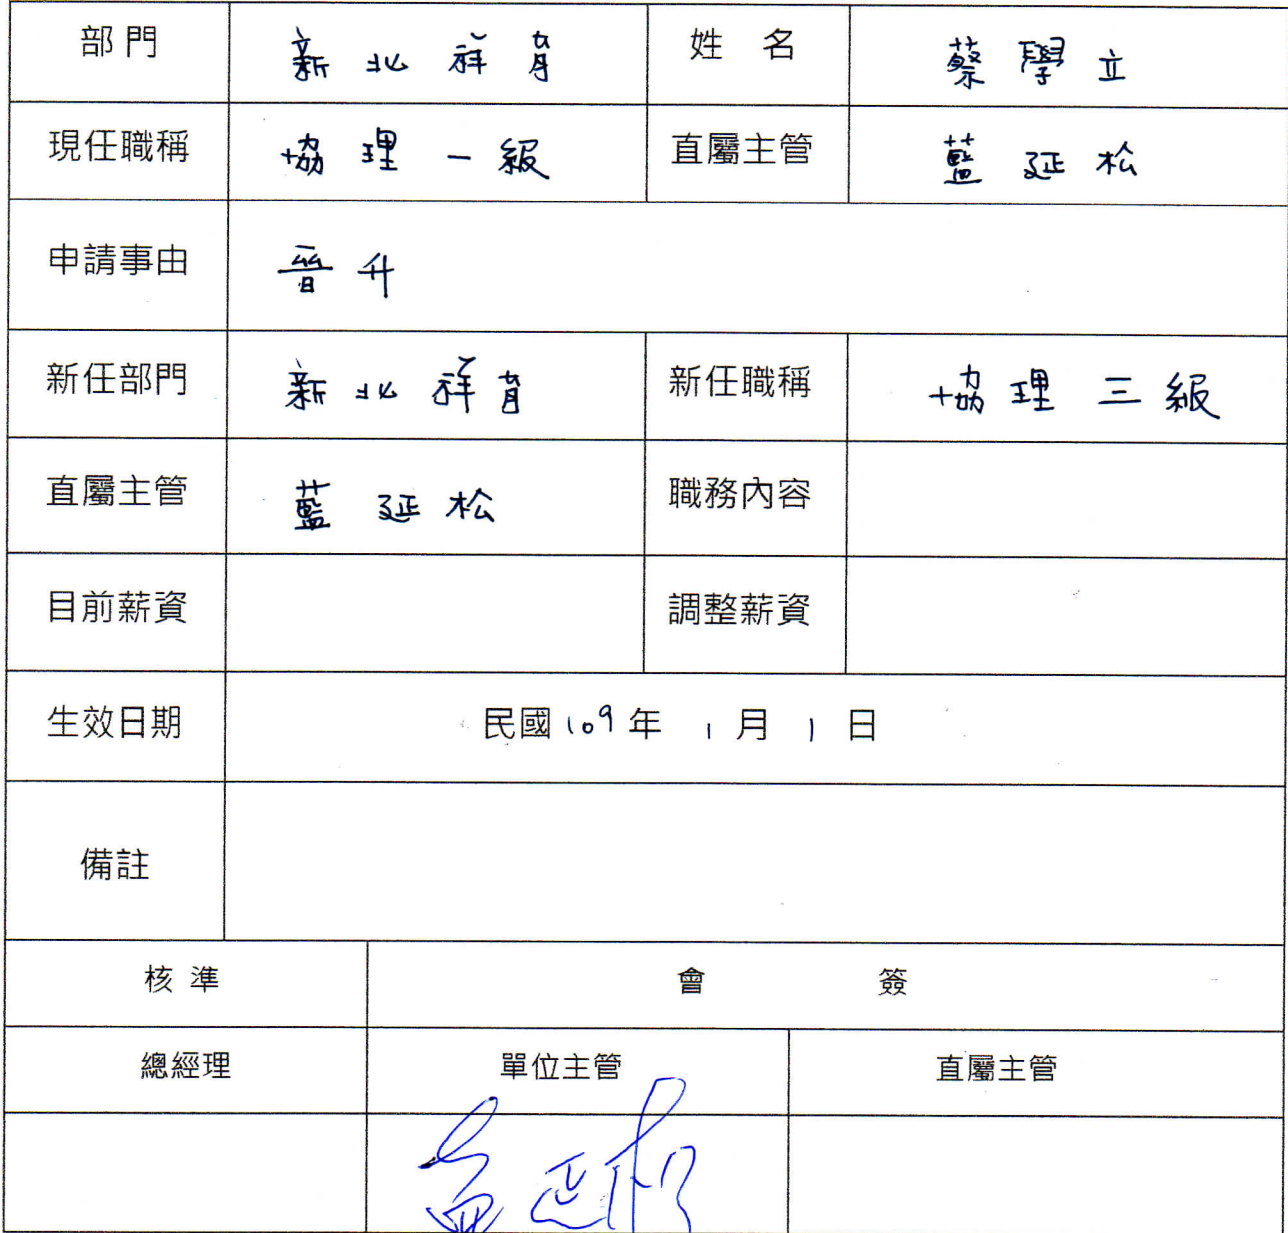 部門 新北祥育 姓名 蔡學立
現任職稱 協理一級 直屬主管 藍延松
申請事由 晉升
新任部門 新北祥育 新任職稱 協理三級
直屬主管 藍延松 職務內容
目前薪資 調整薪資
生效日期 民國109年1月1日
備註
核準 會簽
總經理 單位主管 直屬主管
藍延松